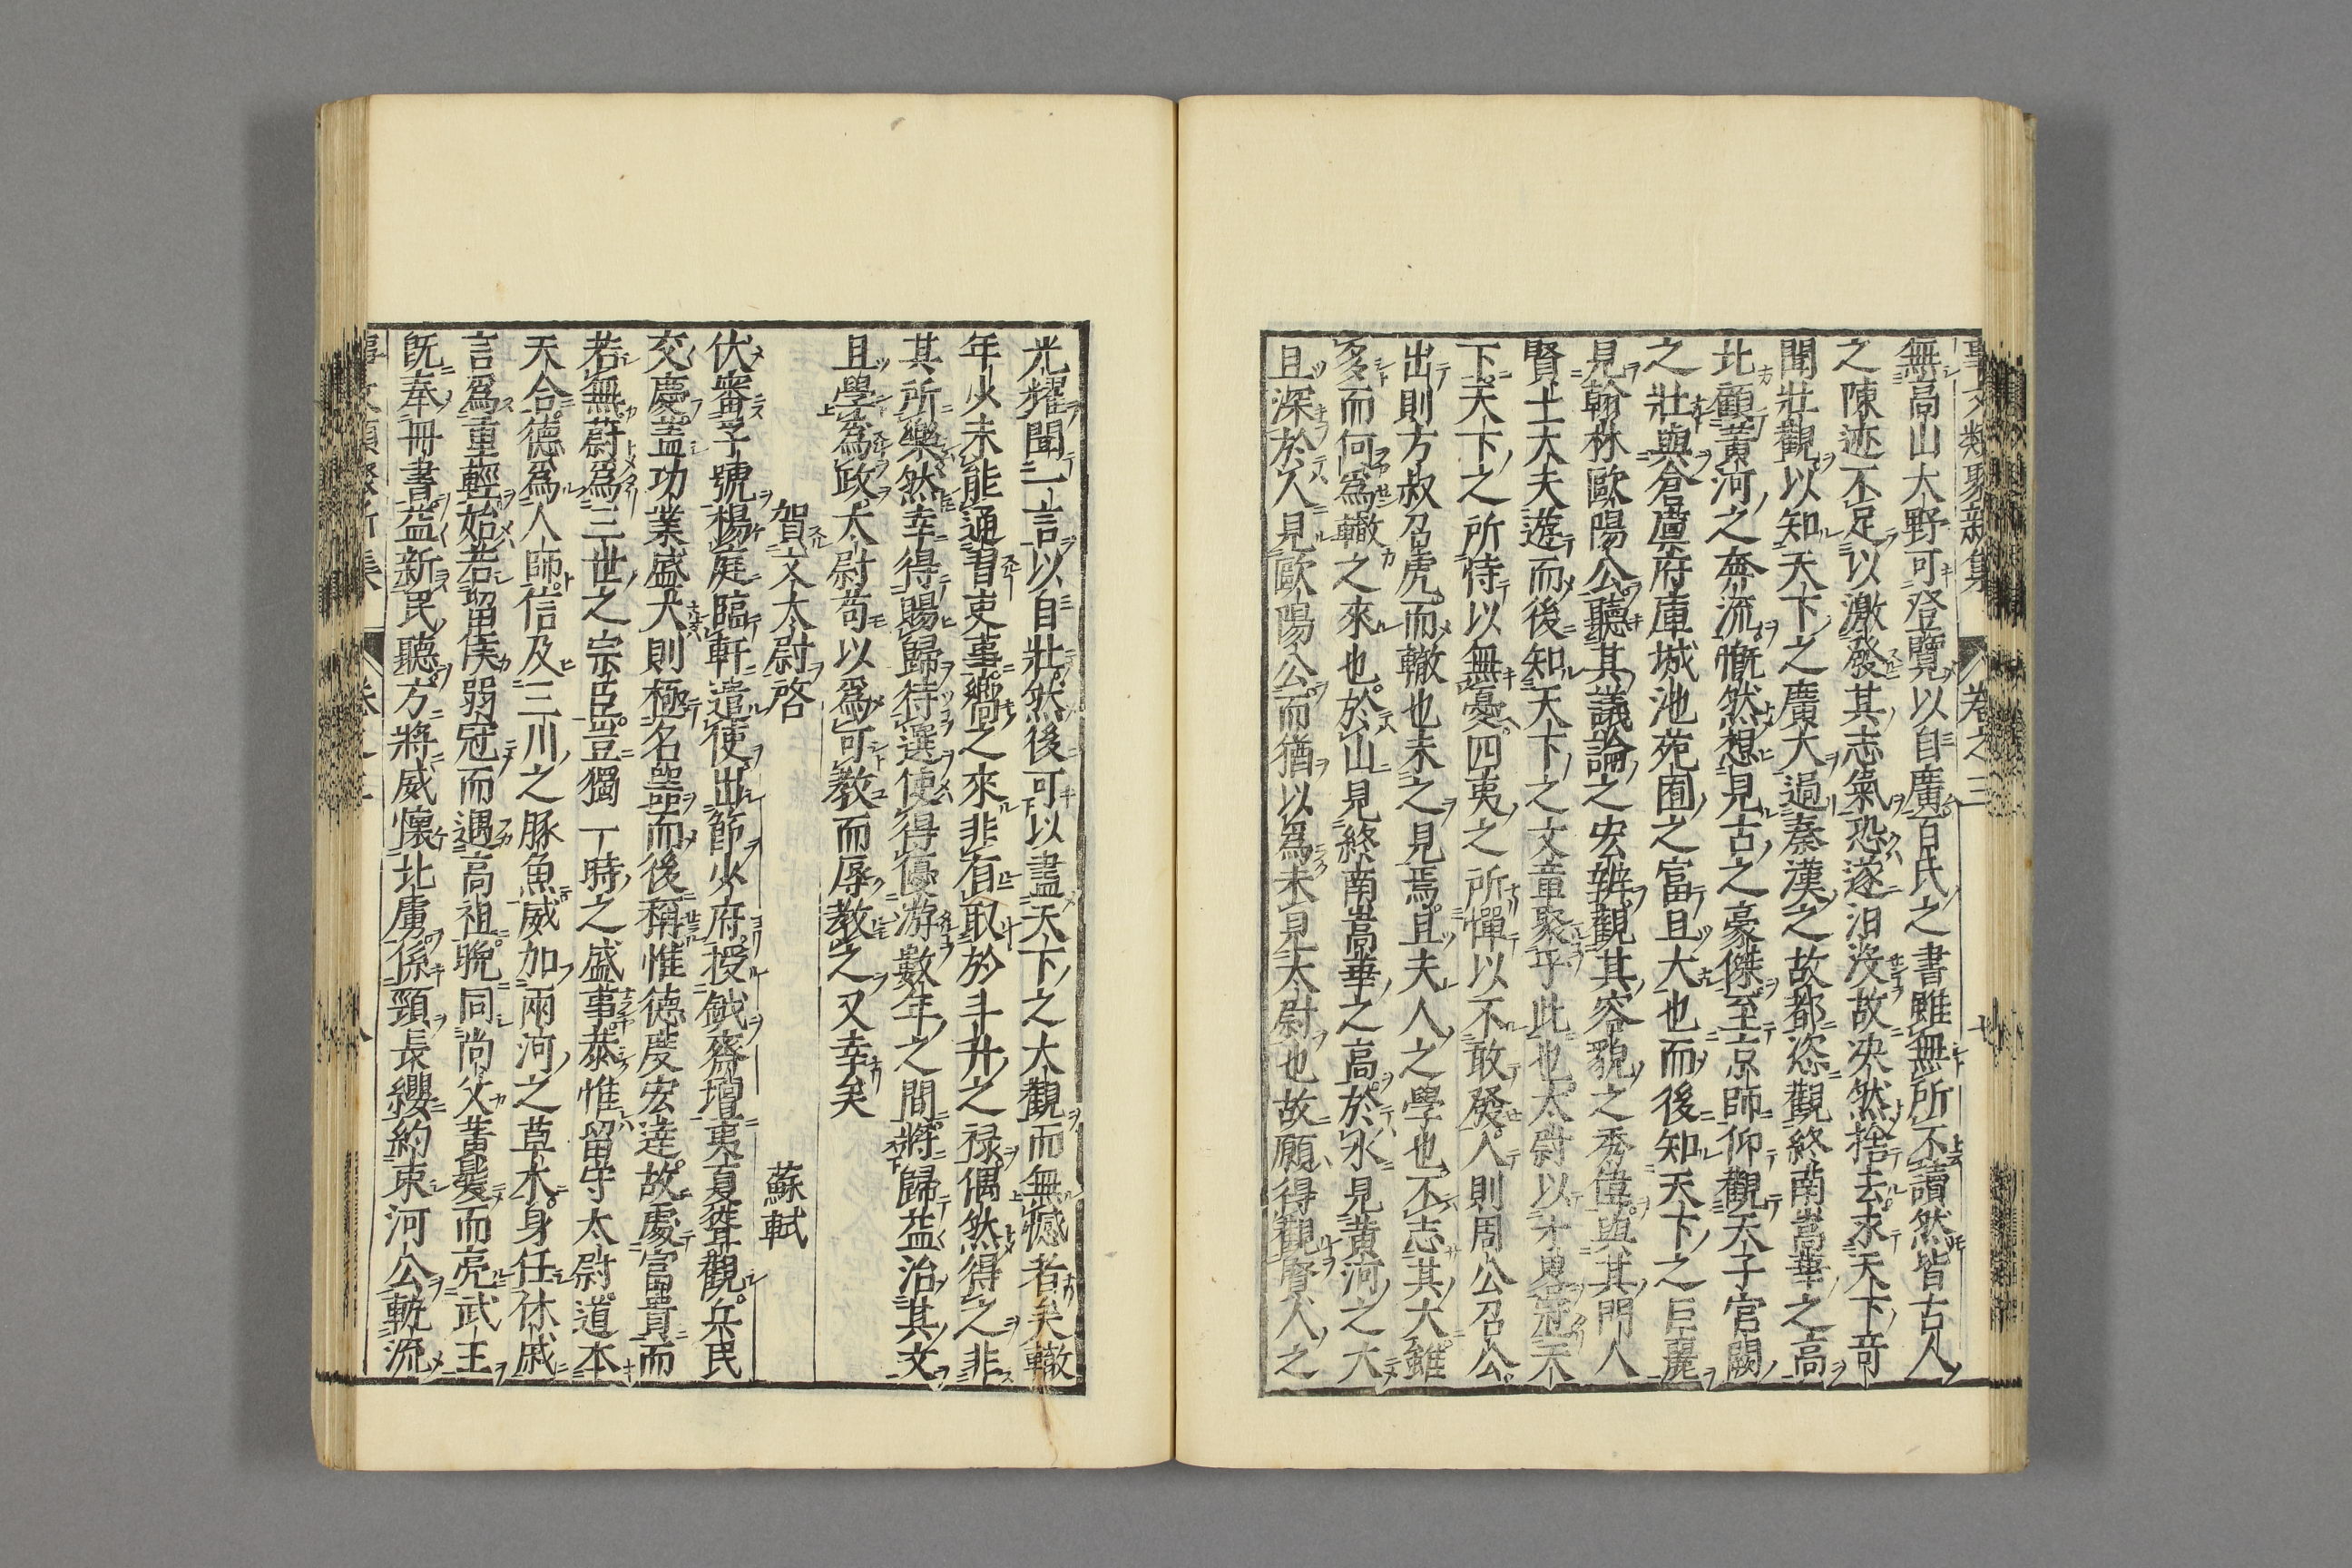 事文類聚新集 卷之三 七
無高山大野可登覽以自廣百氏之書雖無所不讀然皆古人
之陳迹不足以激發其志氣恐遂汨沒故决然捨去求天下竒
聞壯觀以知天下之廣大過秦漢之故都恣觀終南嵩華之高
北顧黃河之奔流慨然想見古之豪傑至京師仰觀天子官闕
之壯與倉廩府庫城池苑囿之富且大也而後知天下之巨麗
見翰林歐陽公聽其議論之宏辨觀其容貌之秀偉與其門人
賢士大夫遊而後知天下之文章聚乎此也太尉以才畧冠天
下天下之所恃以無憂四夷之所憚以不敢發入則周公召公
出則方叔召虎而轍也未之見焉且夫人之學也不志其大雖
多而何爲轍之來也於山見終南嵩華之高於水見黃河之大
且深於人見歐陽公而猶以爲未見太尉也故願得觀賢人之
光耀聞一言以自壯然後可以盡天下之大觀而無憾者矣轍
年少未能通習吏事嚮之來非有取於斗升之禄偶然得之非
其所樂然幸得賜歸待選使得優游數年之間將歸益治其文
且學爲政太尉苟以爲可教而辱教之又幸矣
賀文太尉啓 蘇軾
伏審孚號楊庭臨軒遣使出節少府授鉞齋壇夷夏聳觀兵民
交慶蓋功業盛大則極名器而後稱惟德度宏達故處富貴而
若無蔚爲三世之宗臣豈獨一時之盛事恭惟留守太尉道本
天合德爲人師信及三川之豚魚威加兩河之草木身任休戚
言爲重輕始若留侯弱冠而遇高祖晩同尚父黃髪而亮武王
旣奉冊書益新民聽方將威懷北虜係頸長纓約束河公軌流